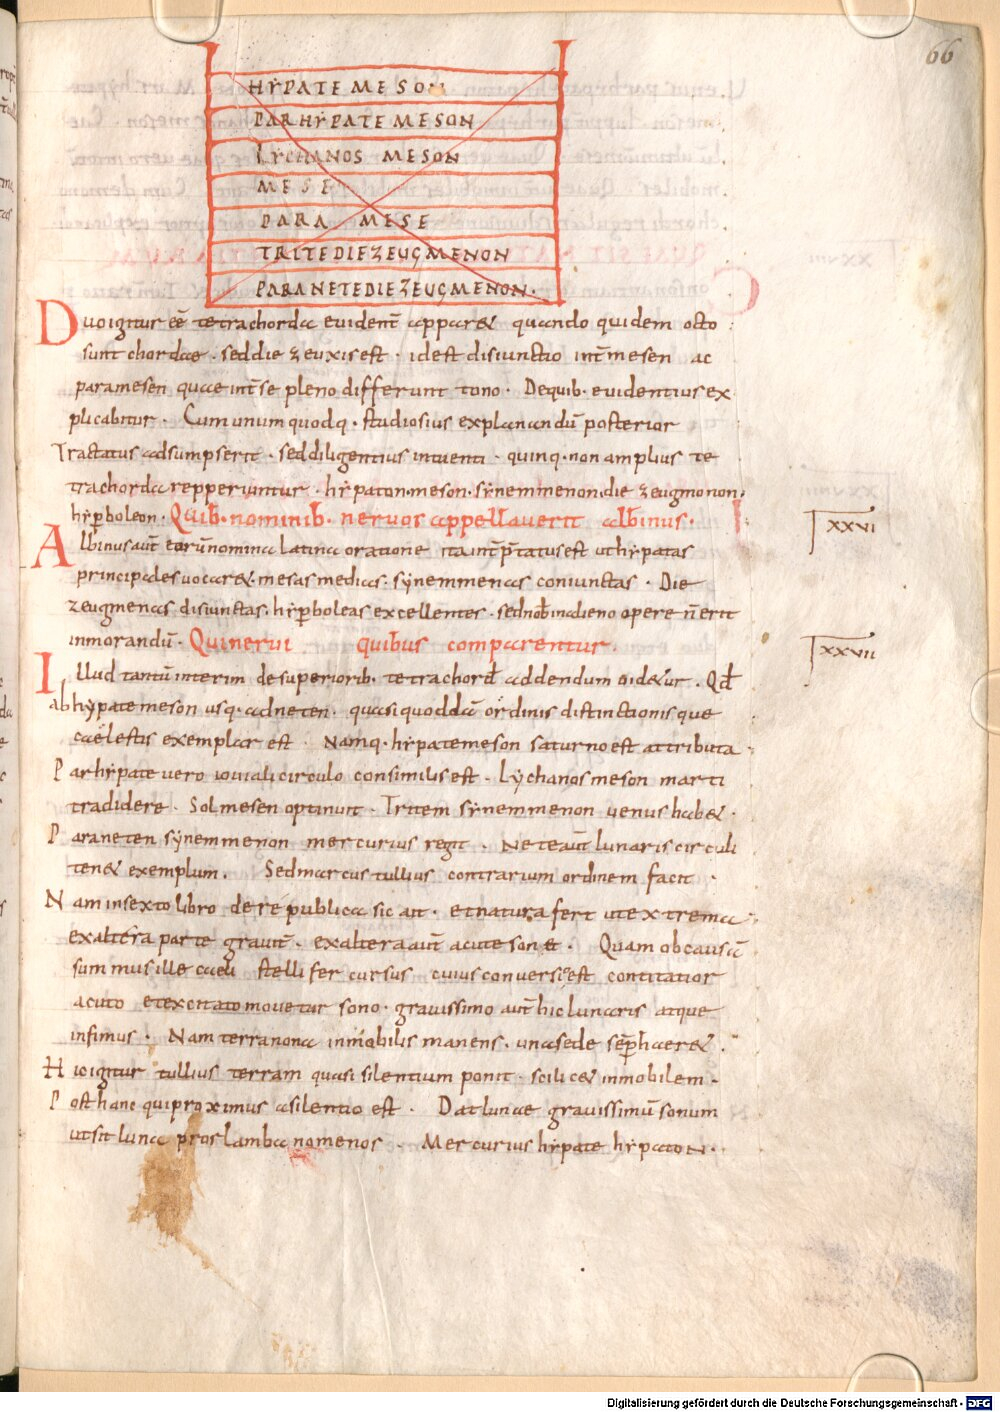 66
HYPATE MESON
PARHYPATE MESON
LYCHANOS MESON
MESE
PARA MESE
TRITE DIEZEUGMENON
PARANETE DIEZEUGMENON.
Duo igitur eē tetrachorda euident̄ apparet quando quidem octo
sunt chordae . sed die zeuxis est . id est disiunctio int̄ mesen ac
paramesen quae int̄ se pleno differunt tono . De quib. euidentius ex
plicabitur . Cum unum quodq. studiosius explanandū posterior
Tractatus adsumpserit . sed diligentius intuenti . quinq. non amplius te
trachorda repperiuntur . hypaton . meson . synemmenon . die zeugmonon .
hyp̄boleon . Quib. nominib. neruos appellauerit albinus .
XXVI
Albinus aut̄ earū nomina latina oratione ita int̄p̄tatus est ut hypatas
principales uocaret . mesas medias . synemmenas coniunctas . Die
zeugmenas disiunctas . hyp̄boleas excellentes . sed nob̄ in alieno opere n̄ erit
inmorandū . Qui nerui quibus comparentur .
XXVII
Illud tantū interim de superiorib. tetrachord̄ addendum uidetur . Qd̄
ab hypate meson usq. ad neten . quasi quoddā ordinis distinctionisque
caelestis exemplar est . Namq. hypate meson saturno est attributa
Parhypate uero iouiali circulo consimilis est . Lychanos meson marti
tradidere . Sol mesen optinuit . Tritem synemmenon uenus habet .
Paraneten synemmenon mercurius regit . Nete aut̄ lunaris circuli
tenet exemplum . Sed marcus tullius contrarium ordinem facit .
Nam in sexto libro de re publica sic ait . et natura fert ut extrema
ex altera parte grauit̄ . ex altera aut̄ acute sonet . Quam ob causā
summus ille caeli stellifer cursus cuius conuersio est contitatior
acuto et excitato mouetur sono . grauissimo aut̄ hic lunaris atque
infimus . Nam terra nona inmobilis manens . una sede semp̄ haeret .
Hic igitur tullius terram quasi silentium ponit . scilicet inmobilem .
Post hanc qui proximus a silentio est . Dat lunae grauissimū sonum
ut sit luna proslambanomenos . Mercurius hypate hypaton .
Digitalisierung gefördert durch die Deutsche Forschungsgemeinschaft - DFG